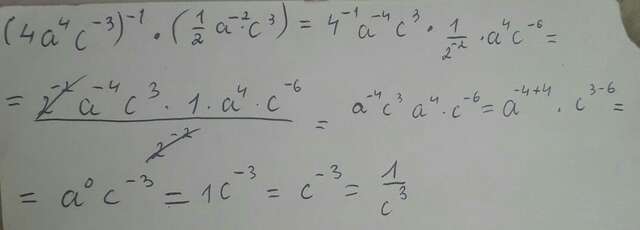 (4a⁴c⁻³)⁻¹ · (1/2 a⁻²c³) = 4⁻¹a⁻⁴c³ · 1/2⁻² · a⁴c⁻⁶ =
= 2⁻²a⁻⁴c³ · 1 · a⁴ · c⁻⁶ / 2⁻² = a⁻⁴c³ a⁴ · c⁻⁶ = a⁻⁴⁺⁴ · c³⁻⁶ =
= a⁰c⁻³ = 1c⁻³ = c⁻³ = 1/c³